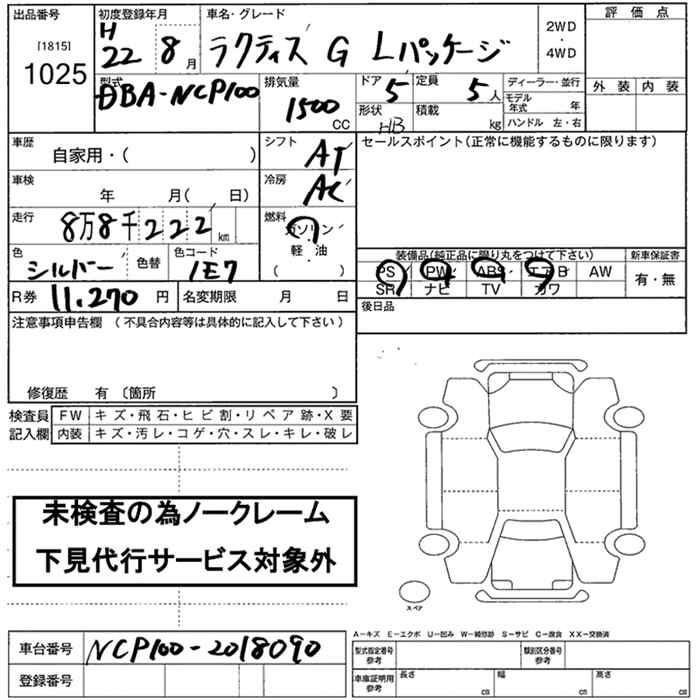 出品番号 初度登録年月 車名・グレード 評価点
[1815] H 2WD
1025 22 8月 ラクティス G Lパッケージ ・
4WD
型式 排気量 ドア 5 定員 5人 ディーラー・並行 外装 内装
DBA-NCP100 1500CC 形状 HB 積載 kg モデル年式 年
ハンドル 左・右
車歴 シフト セールスポイント(正常に機能するものに限ります)
自家用・( ) AT
車検 冷房
年 月( 日) AC
走行 8万8千222km 燃料
ガソリン
軽・油
( )
色 シルバー 色替 色コード 1E7
装備品(純正品に限り丸をつけて下さい) 新車保証書
PS PW ABS エアB AW 有・無
SR ナビ TV カワ
R券 11,270円 名変期限 月 日 後日品
注意事項申告欄(不具合内容等は具体的に記入して下さい)
修復歴 有〔箇所 〕
検査員 FW キズ・飛石・ヒビ割・リペア跡・X要
記入欄 内装 キズ・汚レ・コゲ・穴・スレ・キレ・破レ
未検査の為ノークレーム
下見代行サービス対象外
スペア
A-キズ E-エクボ U-凹み W-補修跡 S-サビ C-腐食 XX-交換済
車台番号 NCP100-2018090 型式指定番号参考 類別区分番号参考
登録番号 車庫証明用参考 長さ cm 幅 cm 高さ cm